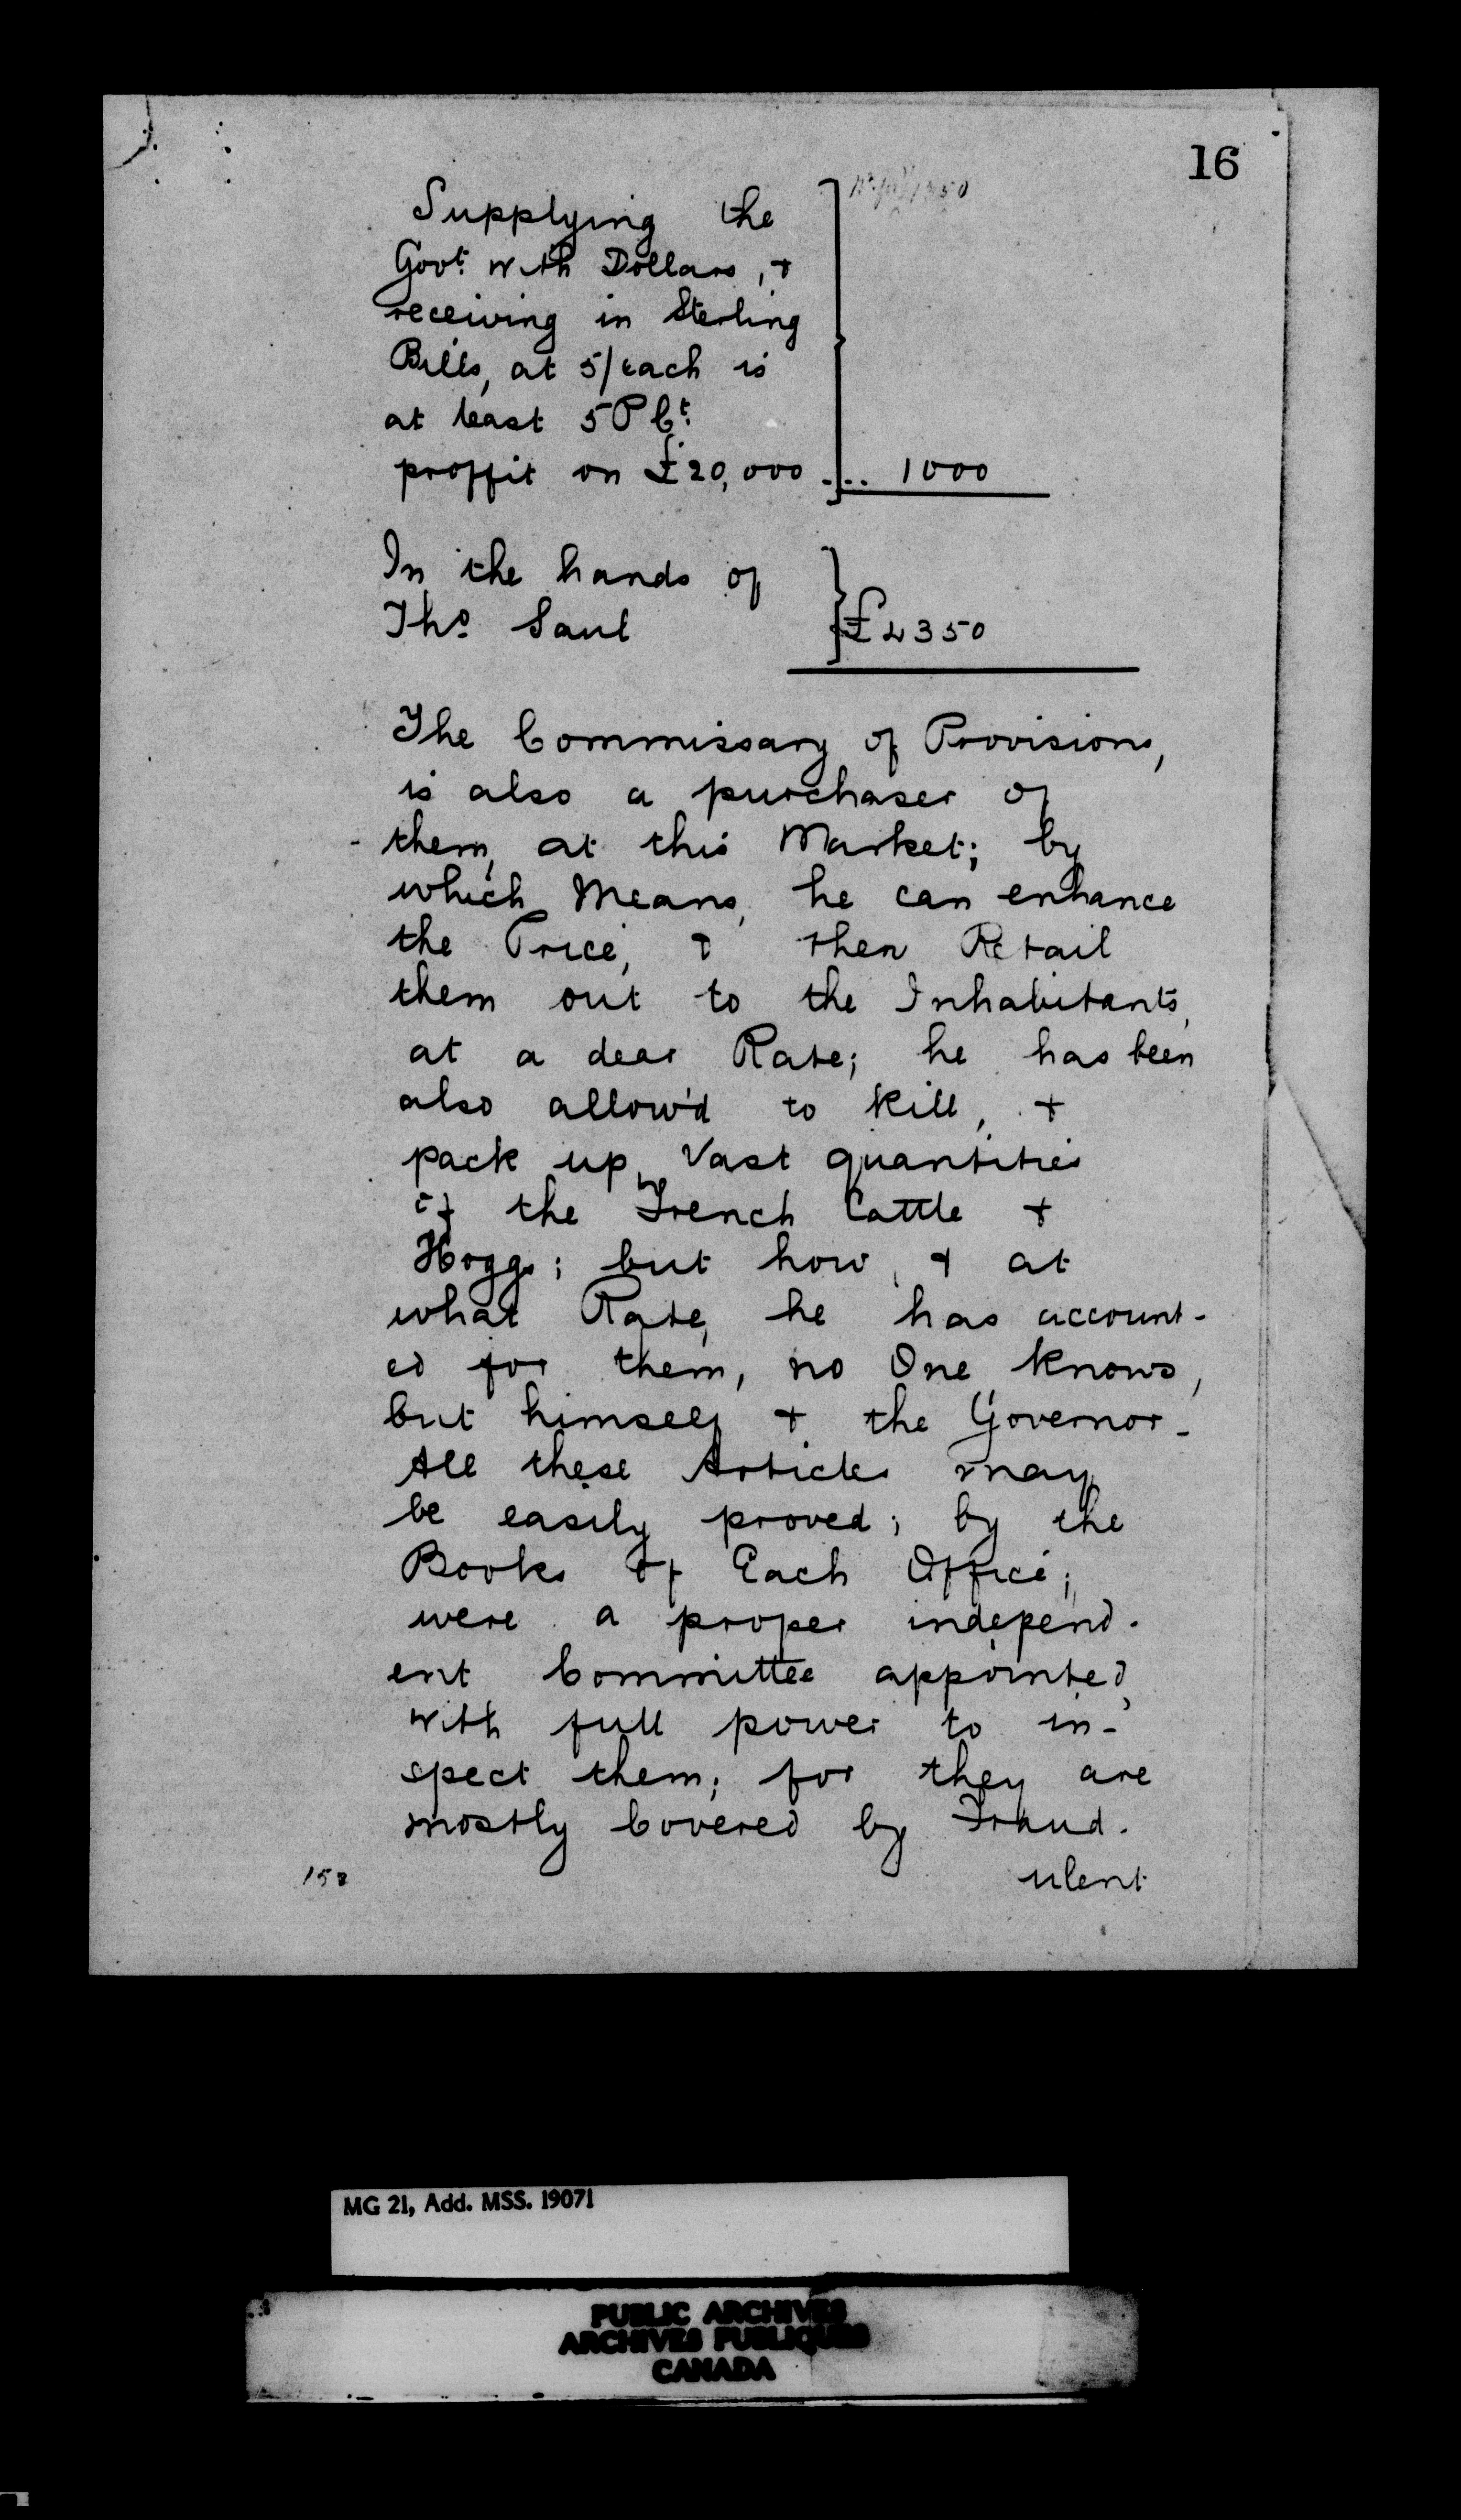 16
Supplying the
Govt. with Dollars, +
receiving in Sterling
Bills, at 5/ each is
at least 5 P Ct.
proffit on £20,000 .... 1000
In the hands of
Tho. Saul £2350
The Commissary of Provisions,
is also a purchaser of
them, at this Market; by
which Means, he can enhance
the Price, & then Retail
them out to the Inhabitants,
at a dear Rate; he has been
also allow'd to kill, +
pack up, Vast quantities
of the French Cattle +
Hoggs; but how, & at
what Rate, he has account-
ed for them, no One knows,
but himself + the Governor-
All these Articles may
be easily proved; by the
Books of Each Office;
were a proper independ-
ent Committee appointed,
with full power to in-
spect them; for they are
mostly Covered by Fraud-
ulent
MG 21, Add. MSS. 19071
PUBLIC ARCHIVES
ARCHIVES PUBLIQUES
CANADA